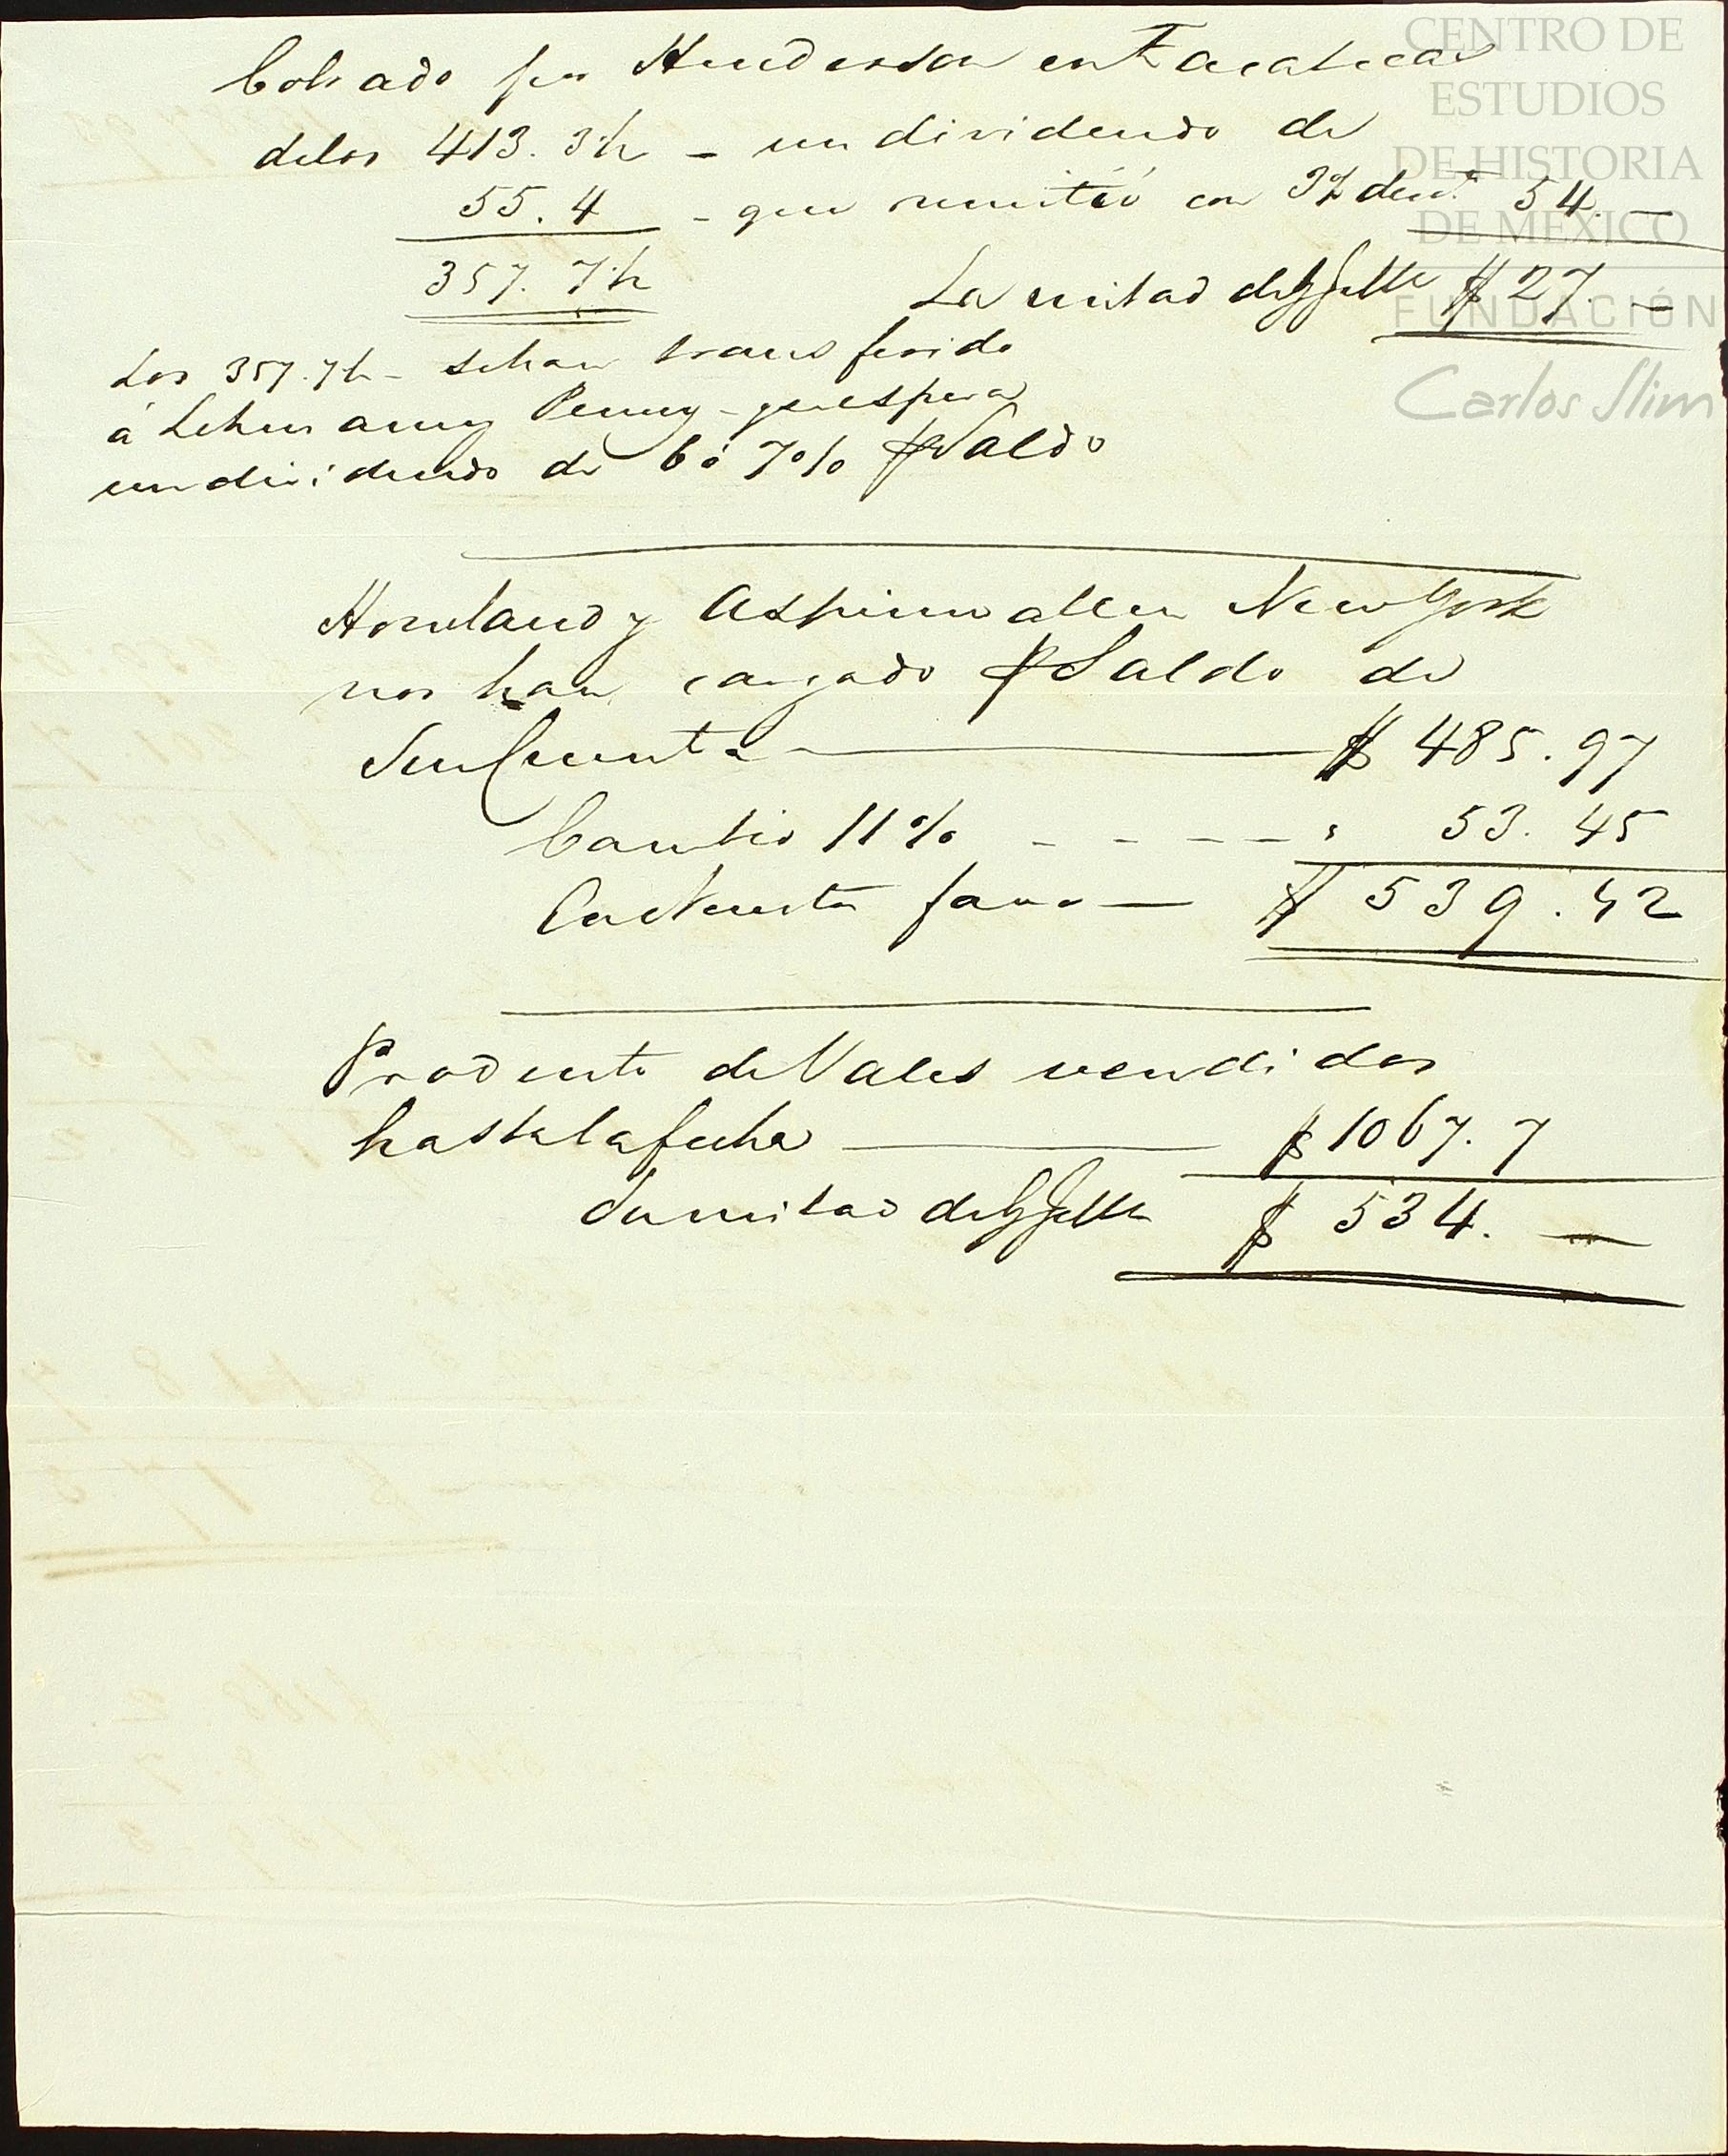 Cobrado por Henderson en Zacatecas
delos 413. 3½ – un dividendo de
55. 4 – que remitió con 3% dect.o 54. —
357. 7½ La mitad de $ 27. —
Los 357. 7½ – se han transferido
á Lehmann y Penny – que espera
un dividendo de 6 ó 7% p Saldo
Howland y Aspinwall en New York
nos han cargado p Saldo de
Su Cuenta — $ 485. 97
Cambio 11% - - - - " 53. 45
En Nuestro favor — $ 539. 42
Producto de Vales vendidos
hasta la fecha — $ 1067. 7
Su mitad de $ 534. —
CENTRO DE
ESTUDIOS
DE HISTORIA
DE MÉXICO
FUNDACIÓN
Carlos Slim